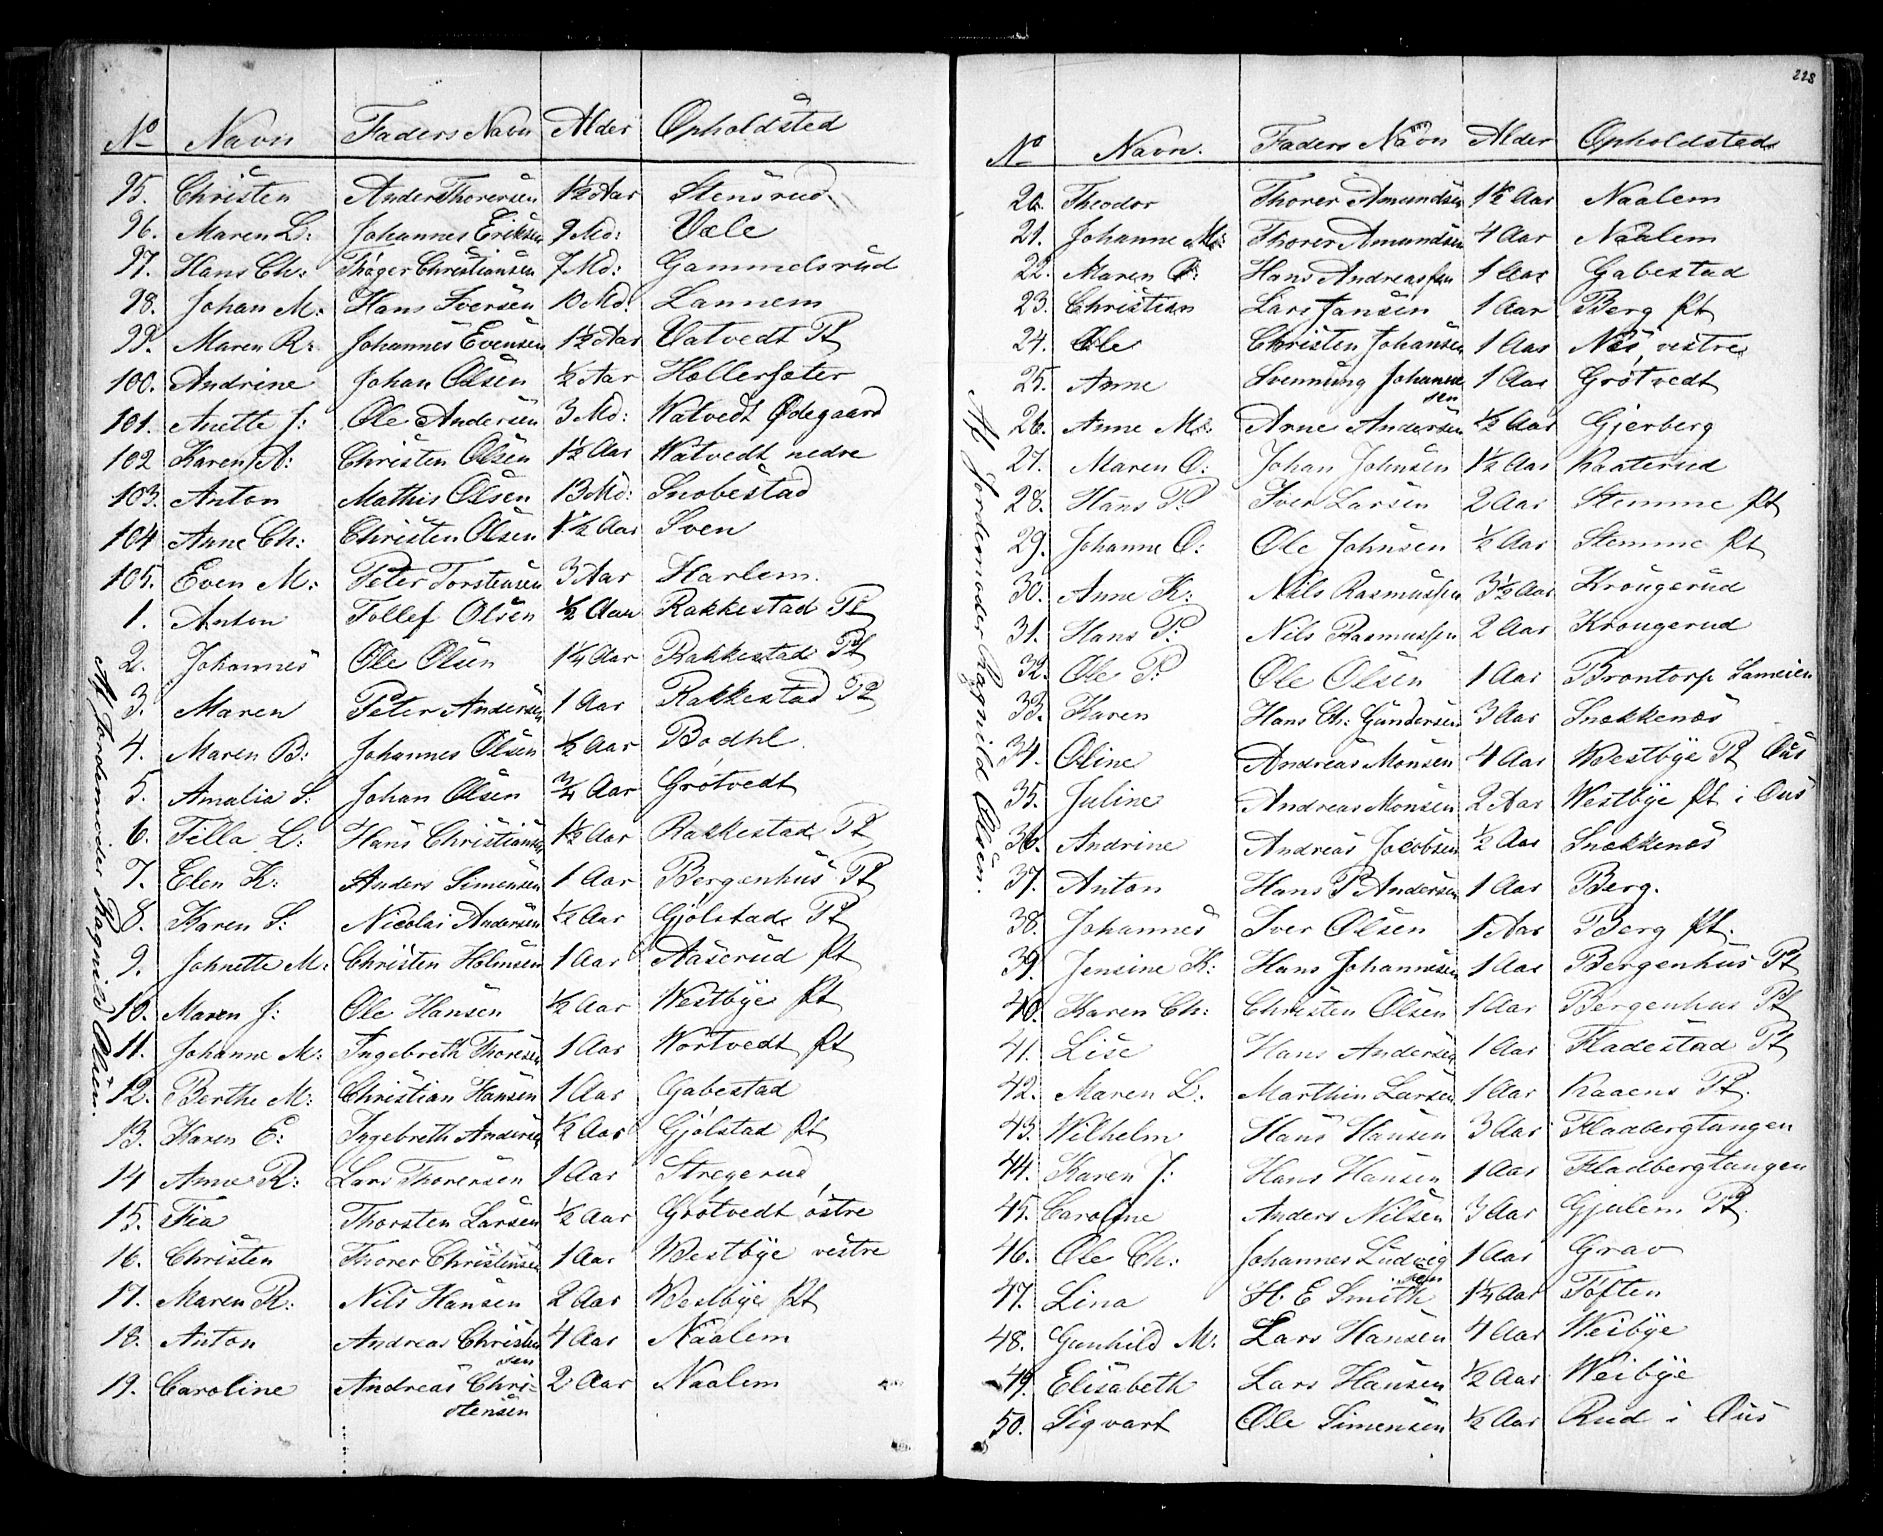 No Navn Faders Navn Alder Opholdsted
95. Christen Anders Thorersen 1½ Aar Stensrud
96. Maren L: Johannes Eriksen 9 Md: Væle
97. Hans Ch: Thøger Christiansen 7 Md: Gammelsrud
98. Johan M: Hans Iversen 10 Md. Lannem
99. Maren R: Johannes Evensen 1½ Aar Vatvedt Pt
100. Andrine Johan Olsen ½ Aar Hollersæter
101. Anette J: Ole Andersen 3 Md: Watvedt Ødegaard
102 Karen A: Christen Olsen 1½ Aar Watvedt nedre
103. Anton Mathis Olsen 13 Md: Snobestad
104 Anne Ch: Christen Olsen 1½ Aar Sven
105. Even M: Peter Torstensen 3 Aar Harlem.
1. Anton Tollef Olsen ½ Aar Rakkestad Pt
2. Johannes Ole Olsen 1¼ Aar Rakkestad Pt
3. Maren Peter Andersen 1 Aar Rakkestad Pt
4. Maren B: Johannes Olsen ½ Aar Bodhl
5. Amalia S: Johan Olsen ¾ Aar Grøtvedt
6. Tilla L: Hans Christiansen 1½ Aar Rakkestad Pt
7. Elen K: Anders Simensen 1 Aar Bergenhus Pt
8. Karen S: Nicolai Andersen ½ Aar Gjølstad Pt
9. Johnette M: Christen Holmsen 1 Aar Aaserud Pt
10. Maren J: Ole Hansen ½ Aar Westbye Pt
11. Johanne M: Ingebreth Thoresen 1 Aar Wortvedt Pt
12. Berthe M: Christian Hansen 1 Aar Gabestad
13. Karen E: Ingebreth Andersen ½ Aar Gjølstad Pt
14 Anne R: Lars Thorersen 1 Aar Stregerud
15. Fia Thorsten Larsen ½ Aar Grøtvedt østre
16. Christen Thorer Christensen 1 Aar Westbye vestre
17. Maren R: Nils Hansen 2 Aar Westbye Pt
18. Anton Andreas Christen 4 Aar Naalem
sen
19. Caroline Andreas Chri- 2 Aar Naalem
stensen
Af Jordemoder Ragnild Olsen.
228
No Navn. Faders Navn Alder Opholdsted
20. Theodor Thorer Amundsen 1½ Aar Naalem
21. Johanne M: Thorer Amundsen 4 Aar Naalem
22. Maren O: Hans Andreassen 1 Aar Gabestad
23. Christian Lars Jansen 1 Aar Berg Pt
24. Ole Christen Johansen 1 Aar Næs, vestre
25. Anne Svennung Johannes 1 Aar Grøtvedt
sen
26. Anne M: Arne Andersen ½ Aar Gjerberg
27. Maren O: Johan Johnsen 1½ Aar Kaaterud
28. Hans P: Iver Larsen 2 Aar Stemme Pt
29. Johanne O: Ole Johnsen ½ Aar Stemme Pt
30. Anne K: Nils Rasmussen 3½ Aar Krougerud
31. Hans P: Nils Rasmussen 2 Aar Krougerud
32. Ole P: Ole Olsen 1 Aar Brontorp Sameien
33. Karen Hans Ch: Gundersen 3 Aar Snekkenæs
34. Oline Andreas Monsen 4 Aar Westbye Pt Øus
35. Juline Andreas Monsen 2 Aar Westbye Pt i Øus
36. Andrine Andreas Jacobsen ½ Aar Snekkenæs
37. Anton Hans P Andersen 1 Aar Berg.
38. Johannes Iver Olsen 1 Aar Berg Pt.
39. Jensine K: Hans Johannesen 1 Aar Bergenhus Pt
40. Karen Ch: Christen Olsen 1 Aar Bergenhus Pt
41. Lise Hans Andersen 1 Aar Fladestad Pt
42. Maren L: Marthin Larsen 1 Aar Kaaens Pt.
43. Wilhelm Hans Hansen 3 Aar Fladbergtangen
44. Karen J: Hans Hansen 1 Aar Fladbergtangen
45. Caroline Anders Nilsen 3 Aar Gjulem Pt
46. Ole Ch: Johannes Ludvig 1 Aar Grav
sen
47. Lina H. E Smith 1¼ Aar Toften
48. Gunhild M: Lars Hansen 4 Aar Weibye
49. Elisabeth Lars Hansen ½ Aar Weibye
50. Sigvart Ole Simensen ½ Aar Rud i Øus
Af Jordemoder Ragnild Olsen.